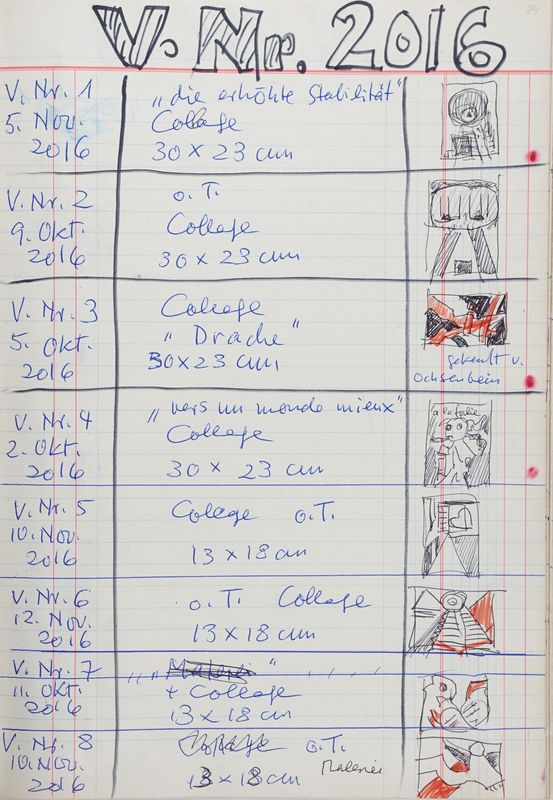 24
V. Nr. 2016
V. Nr. 1
5. Nov.
2016
"die erhöhte Stabilität"
Collage
30 x 23 cm
V. Nr. 2
9. Okt.
2016
o.T.
Collage
30 x 23 cm
V. Nr. 3
5. Okt.
2016
Collage
"Drache"
30 x 23 cm
gekauft v.
Ochsenbein
V. Nr. 4
2. Okt.
2016
"vers un monde mieux"
Collage
30 x 23 cm
à la folie
V. Nr. 5
10. Nov.
2016
Colage o.T.
13 x 18 cm
V. Nr. 6
12. Nov.
2016
o.T. Collage
13 x 18 cm
V. Nr. 7
11. Okt.
2016
"Malerei"
+ Collage
13 x 18 cm
V. Nr. 8
10. Nov.
2016
Collage o.T.
Malerei
13 x 18 cm